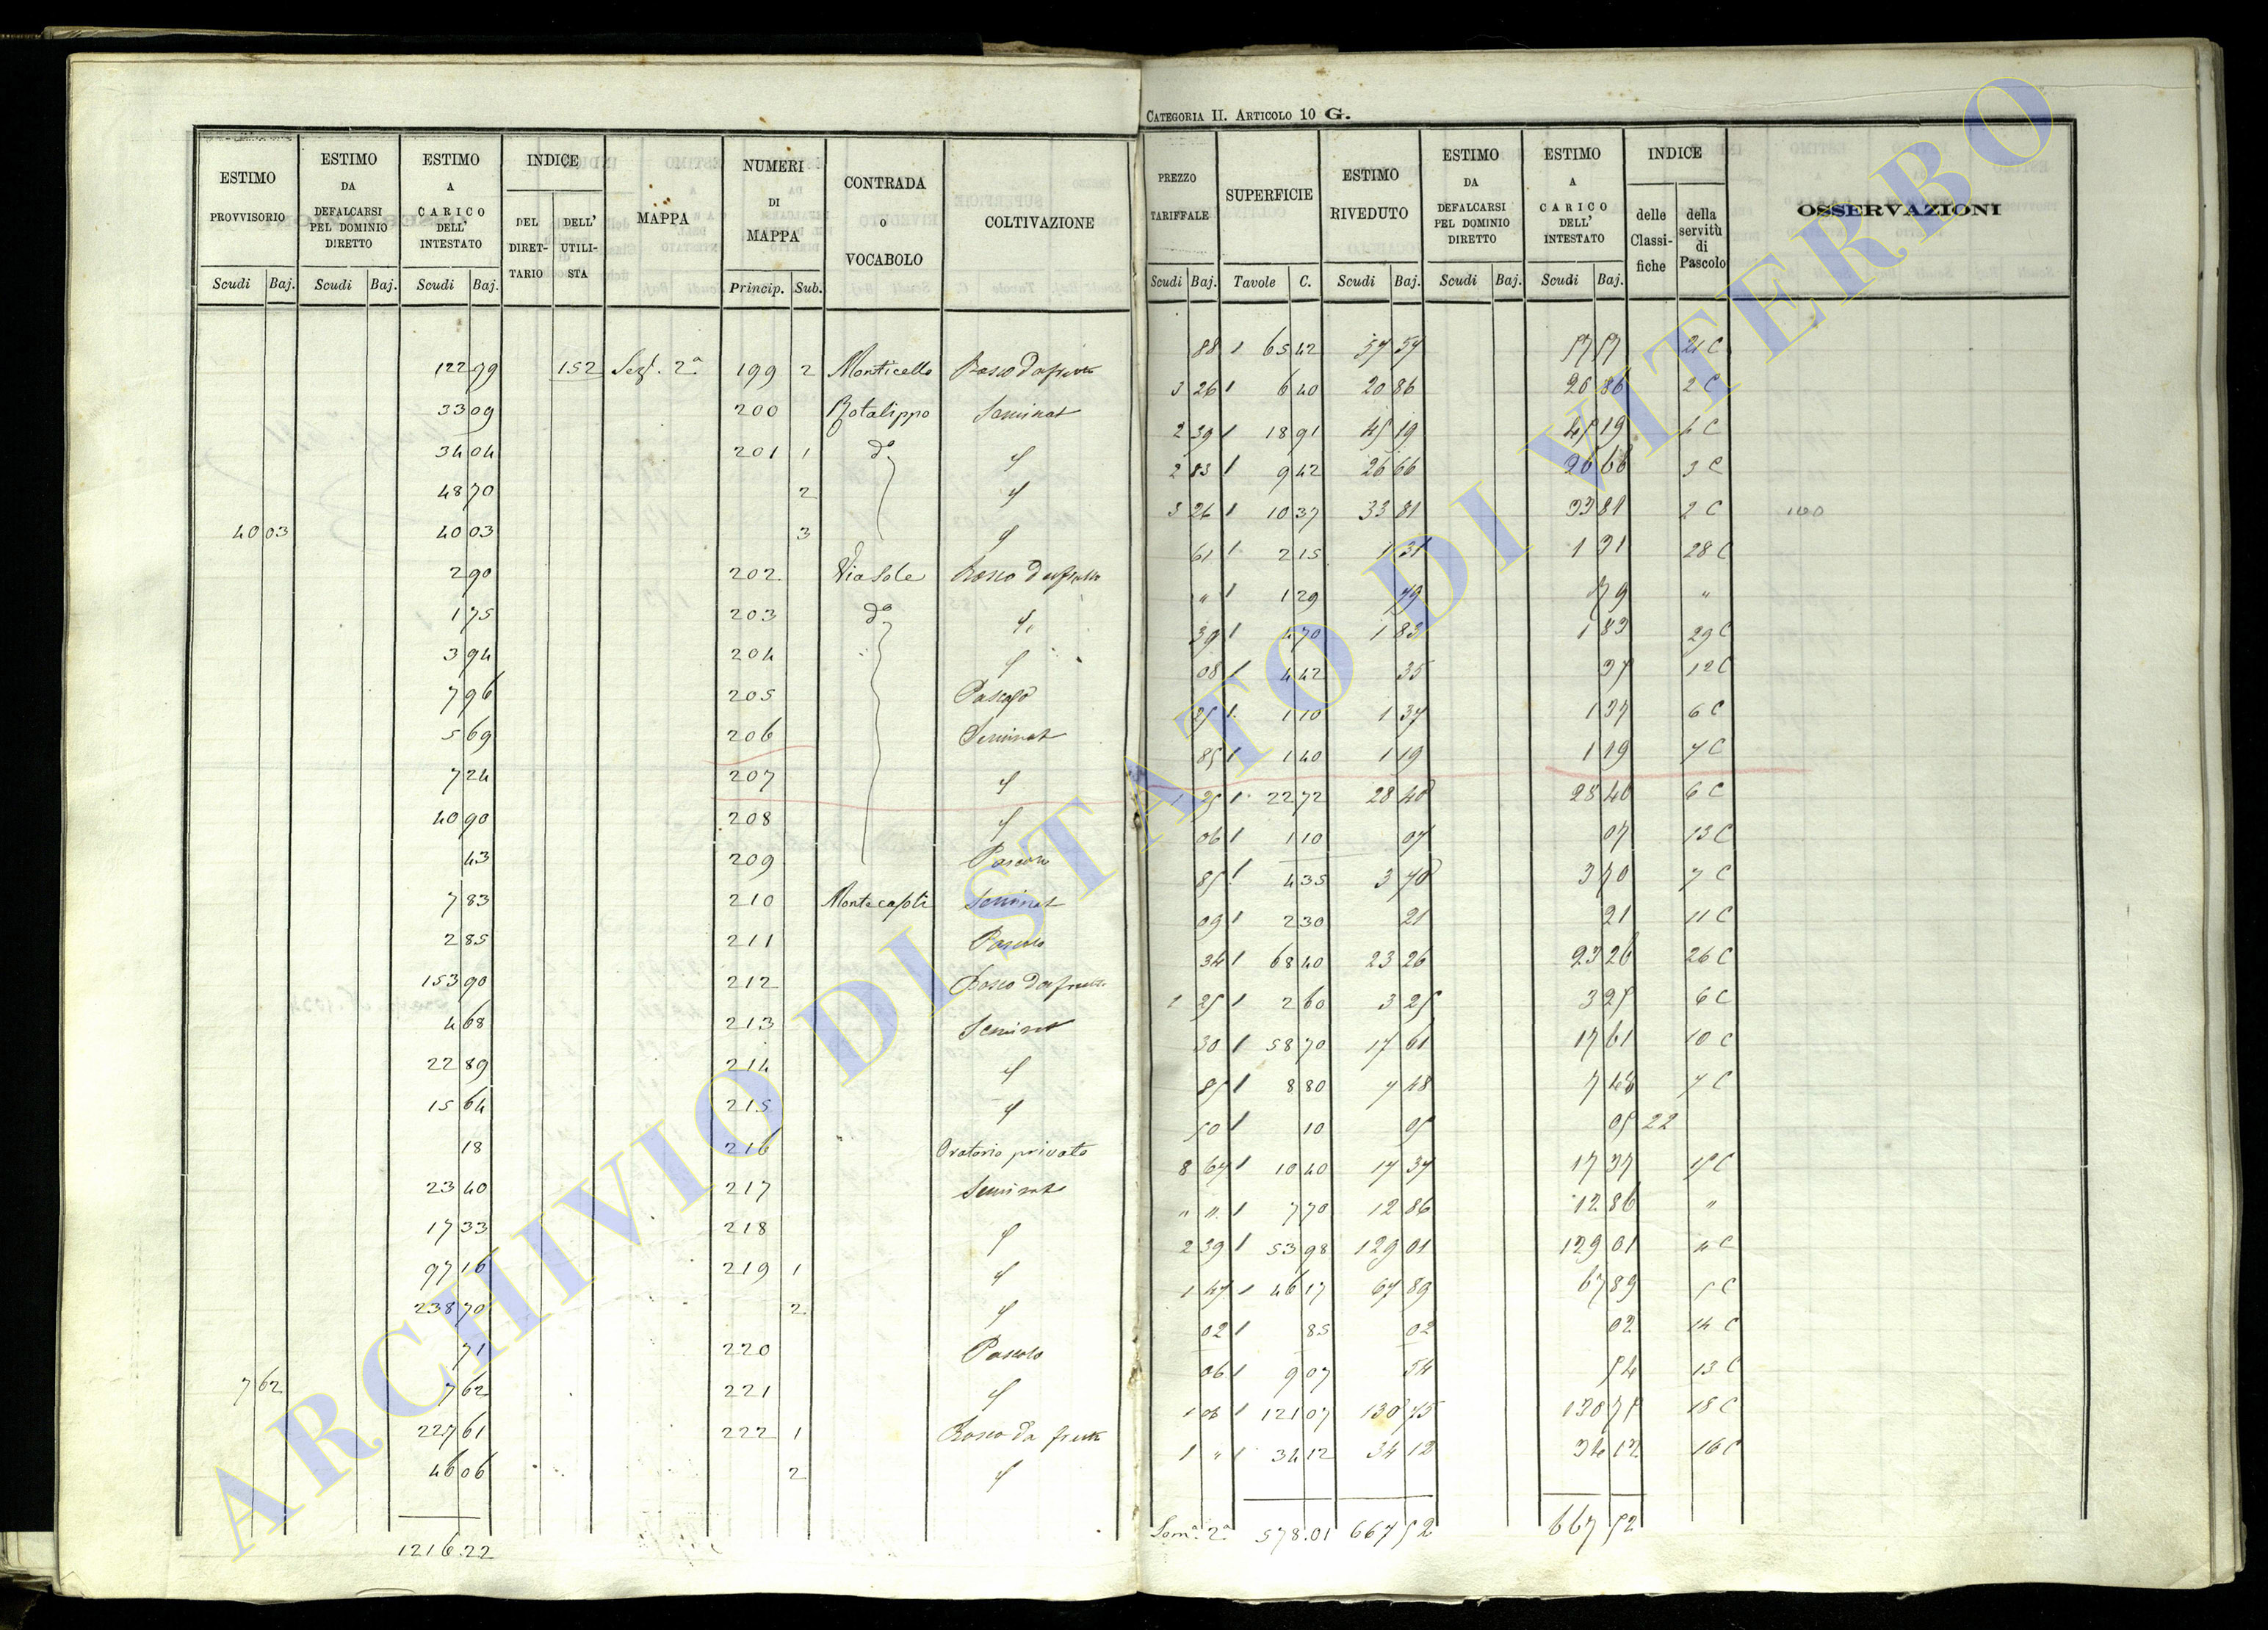 CATEGORIA II. ARTICOLO 10 G.
ESTIMO PROVVISORIO Scudi Baj. | ESTIMO DA DEFALCARSI PEL DOMINIO DIRETTO Scudi Baj. | ESTIMO A CARICO DELL' INTESTATO Scudi Baj. | INDICE DEL DIRETTARIO | DELL' UTILISTA | MAPPA | NUMERI DI MAPPA Princip. Sub. | CONTRADA O VOCABOLO | COLTIVAZIONE
122 99 152 Sez. 2a 199 2 Monticello Bosco da frutto
33 09 200 Rotalippo Seminat
34 04 201 1 do "
48 70 2 "
40 03 40 03 3 "
2 90 202 Via Sole Bosco da frutto
1 75 203 do "
3 94 204 "
7 96 205 Pascolo
5 69 206 Seminat
7 24 207 "
40 90 208 "
43 209 Pascolo
7 83 210 Seminat
2 85 211 Pascolo
153 90 212 Bosco da frutto
4 68 213 Seminat
22 89 214 "
15 64 215 "
18 216 Oratorio privato
23 40 217 Seminat
17 33 218 "
97 16 219 1 "
238 70 2 "
71 220 Pascolo
7 62 7 62 221 "
227 61 222 1 Bosco da frutt
46 06 2 "
1216.22
PREZZO TARIFFALE Scudi Baj. | SUPERFICIE Tavole C. | ESTIMO RIVEDUTO Scudi Baj. | ESTIMO DA DEFALCARSI PEL DOMINIO DIRETTO Scudi Baj. | ESTIMO A CARICO DELL' INTESTATO Scudi Baj. | INDICE delle Classifiche | della servitù di Pascolo | OSSERVAZIONI
88 1 65 42 57 57 57 57 21 C
3 26 1 6 40 20 86 20 86 2 C
2 39 1 18 91 45 19 45 19 4 C
2 83 1 9 42 26 66 26 66 3 C
3 26 1 10 37 33 81 33 81 2 C 100
61 1 2 15 1 31 1 31 28 C
" 1 1 29 79 79 "
39 1 4 70 1 83 1 83 29 C
08 1 4 42 35 35 12 C
1 25 1 1 10 1 37 1 37 6 C
85 1 1 40 1 19 1 19 7 C
1 25 1 22 72 28 40 28 40 6 C
06 1 1 10 07 07 13 C
85 1 4 35 3 70 3 70 7 C
09 1 2 30 21 21 11 C
34 1 68 40 23 26 23 26 26 C
1 25 1 2 60 3 25 3 25 6 C
30 1 58 70 17 61 17 61 10 C
85 1 8 80 7 48 7 48 7 C
50 1 10 05 05 22
1 67 1 10 40 17 37 17 37 5 C
" " 1 7 70 12 86 12 86 "
2 39 1 53 98 129 01 129 01 4 C
1 47 1 46 17 67 89 67 89 5 C
02 1 85 02 02 14 C
06 1 9 07 54 54 13 C
1 08 1 121 07 130 75 130 75 18 C
1 " 1 34 12 34 12 34 12 16 C
Som.a 2.a 578.01 667 52 667 52
ARCHIVIO DI STATO DI VITERBO